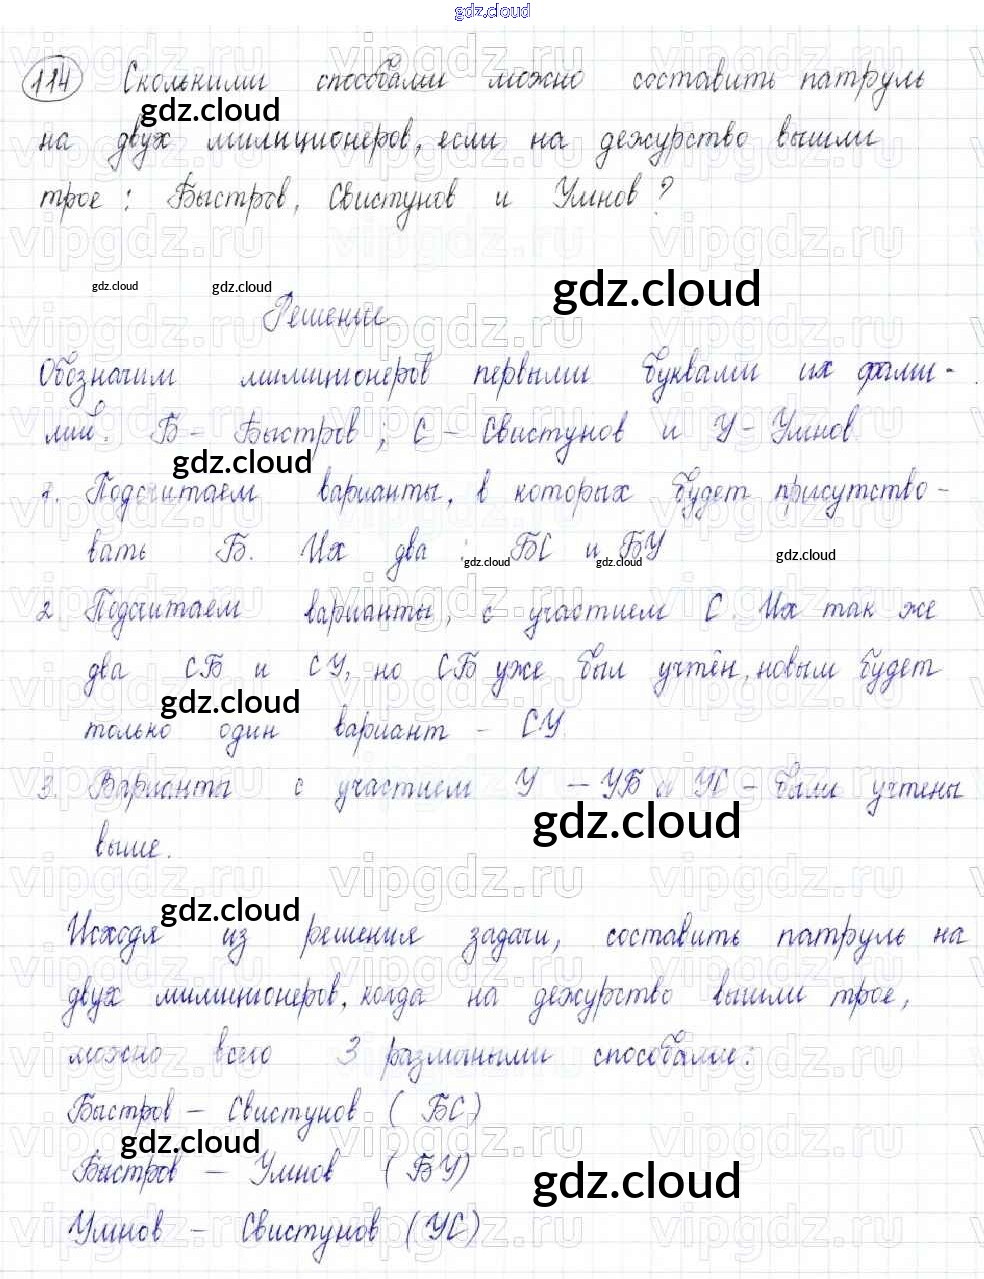 gdz.cloud
114 Сколькими способами можно составить патруль
на двух милиционеров, если на дежурство вышли
трое: Быстров, Свистунов и Умнов?
Решение
Обозначим милиционеров первыми буквами их фами-
лий. Б - Быстров; С - Свистунов и У - Умнов.
1. Подсчитаем варианты, в которых будет присутство-
вать Б. Их два: БС и БУ
2. Подсчитаем варианты, с участием С. Их так же
два СБ и СУ, но СБ уже был учтён, новым будет
только один вариант - СУ.
3. Варианты с участием У - УБ и УС - были учтены
выше.
Исходя из решения задачи, составить патруль на
двух милиционеров, когда на дежурство вышли трое,
можно всего 3 разными способами:
Быстров - Свистунов (БС)
Быстров - Умнов (БУ)
Умнов - Свистунов (УС)